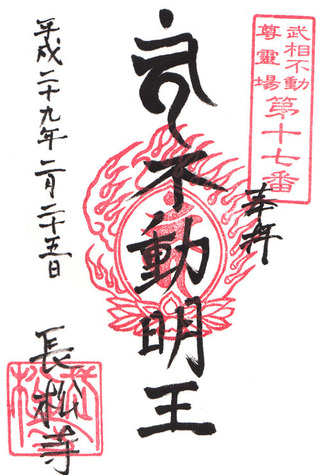 武相不動
尊靈場
第十七番
奉拝
不動明王
平成二十九年二月二十五日
長松寺